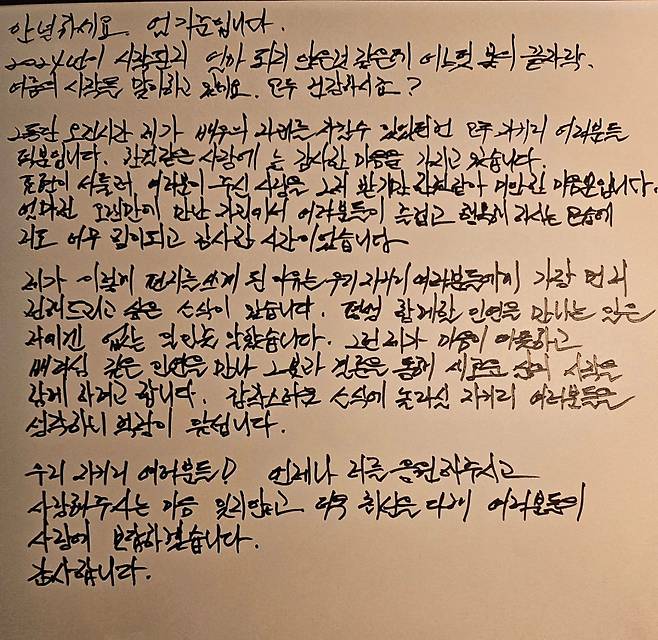 안녕하세요. 엄기준입니다.
2024년이 시작된지 얼마 되지 않은것 같은데 어느덧 봄의 끝자락.
여름의 시작을 맞이하고 있네요. 모두 건강하시죠?
그동안 오랜시간 제가 배우의 자리를 지킬수 있었던건 모두 자기리 여러분들
덕분입니다. 한결같은 사랑에 늘 감사한 마음을 가지고 있습니다.
표현이 서툴러, 여러분이 주신 사랑을 그저 받기만 한것같아 미안한 마음뿐입니다.
얼마전 오랜만에 만난 자리에서 여러분들이 즐겁고 행복해 하시는 모습에
저도 너무 힘이되고 감사한 시간이었습니다
제가 이렇게 편지를 쓰게 된 이유는 우리 자기리 여러분들에게 가장 먼저
전해드리고 싶은 소식이 있습니다. 평생 함께할 인연을 만나는 일은
저에겐 없는 일인줄 알았습니다. 그런 저와 마음이 따뜻하고
배려심 깊은 인연을 만나 그분과 결혼을 통해 새로운 삶의 시작을
함께 하려고 합니다. 갑작스러운 소식에 놀라실 자기리 여러분들을
생각하니 떨립니다.
우리 자기리 여러분들! 언제나 저를 응원해주시고
사랑해주시는 마음 잊지않고 더욱 최선을 다해 여러분들의
사랑에 보답하겠습니다.
감사합니다.